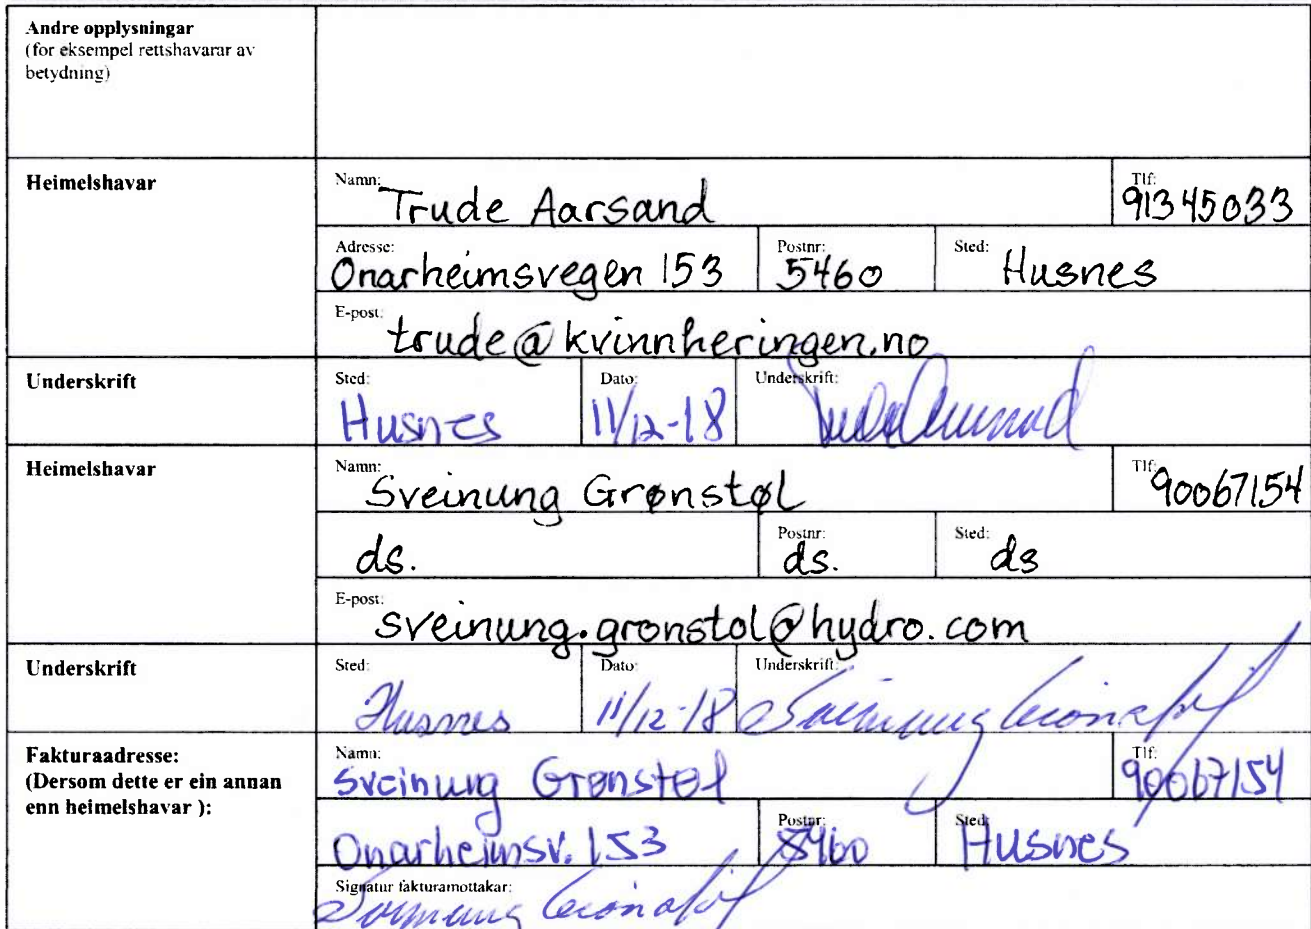 Andre opplysningar
(for eksempel rettshavarar av
betydning)
Heimelshavar
Namn: Trude Aarsand
Tlf: 91345033
Adresse: Onarheimsvegen 153
Postnr: 5460
Sted: Husnes
E-post: trude@kvinnheringen.no
Underskrift
Sted: Husnes
Dato: 11/12-18
Underskrift:
Heimelshavar
Namn: Sveinung Grønstøl
Tlf: 90067154
ds.
Postnr: ds.
Sted: ds
E-post: sveinung.gronstol@hydro.com
Underskrift
Sted: Husnes
Dato: 11/12-18
Underskrift: Sveinung Grønstøl
Fakturaadresse:
(Dersom dette er ein annan
enn heimelshavar ):
Namn: Sveinung Grønstøl
Tlf: 90067154
Onarheimsv. 153
Postnr: 5460
Sted: Husnes
Signatur fakturamottakar:
Sveinung Grønstøl